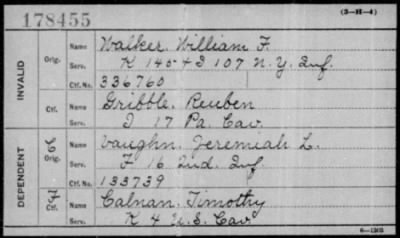 178455 (3-H-4)
INVALID
Orig. Name Walker, William F.
Serv. K 145 & I 107 N.Y. Inf.
Ctf. No. 336760
Ctf. Name Gribble, Reuben
Serv. I 17 Pa. Cav.
DEPENDENT
Orig. Name Vaughn, Jeremiah L.
Serv. F 16 Ind. Inf.
Ctf. No. 133739
Ctf. Name Calnan, Timothy
Serv. K 4 U.S. Cav.
6-1205